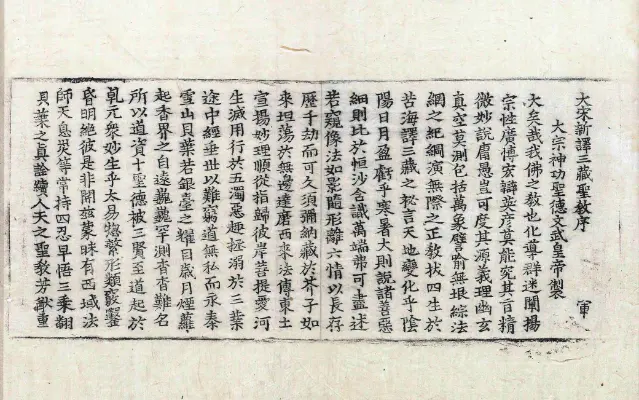 大宋新譯三藏聖教序
軍
太宗神功聖德文武皇帝製
大矣哉我佛之教也化導群迷闡揚
宗性廣博宏辯英彥莫能究其旨精
微妙說庸愚豈可度其源義理幽玄
真空莫測包括萬象譬喻無垠綜法
網之紀綱演無際之正教拔四生於
苦海譯三藏之秘言天地變化乎陰
陽日月盈虧乎寒暑大則說諸善惡
細則比於恒沙含識萬端弗可盡述
若窺像法如影隨形離六情以長存
歷千劫而可久須彌納藏於芥子如
來坦蕩於無邊達磨西來法傳東土
宣揚妙理順從指歸彼岸菩提愛河
生滅用行於五濁惡趣拯溺於三業
途中經垂世以難窮道無私而永泰
雪山貝葉若銀臺之耀目歲月煙蘿
起香界之自遠巍巍罕測杳杳難名
所以道資十聖德被三賢至道起於
乾元衆妙生乎太易揔繁形類竅鑿
昏明絕彼是非開玆蒙昧有西域法
師天息災等常持四忍早悟三乘翻
貝葉之真詮續人天之聖教芳猷重